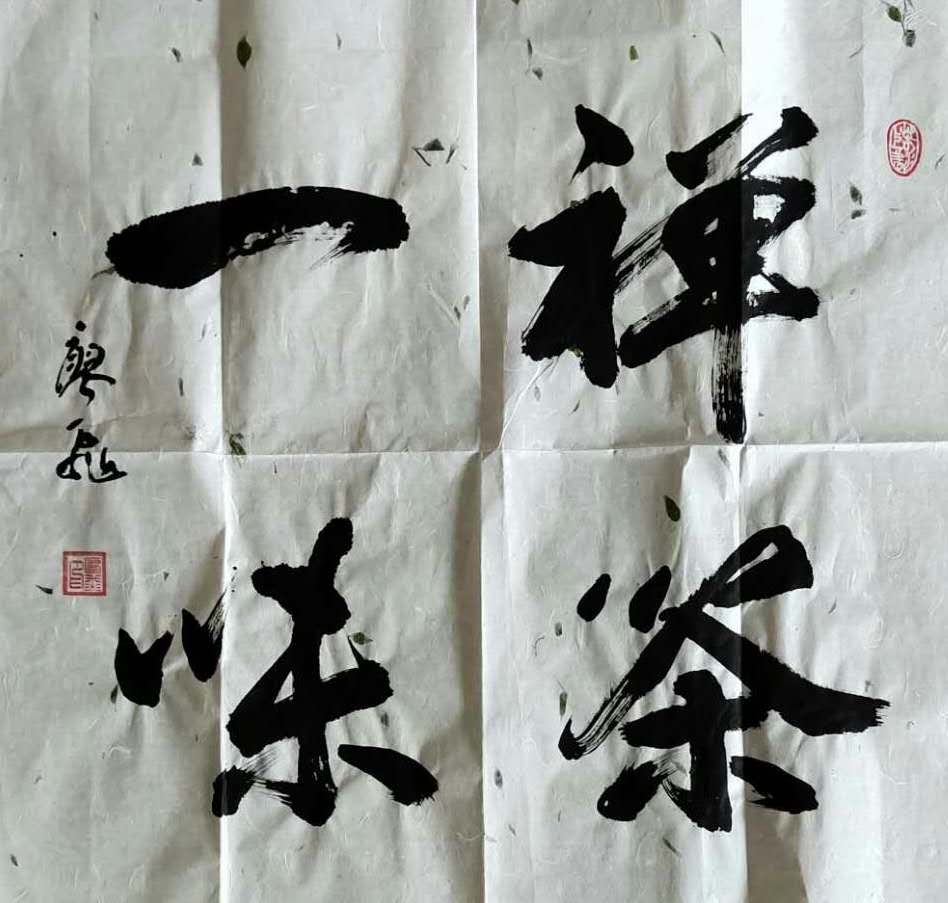 禅茶
一味